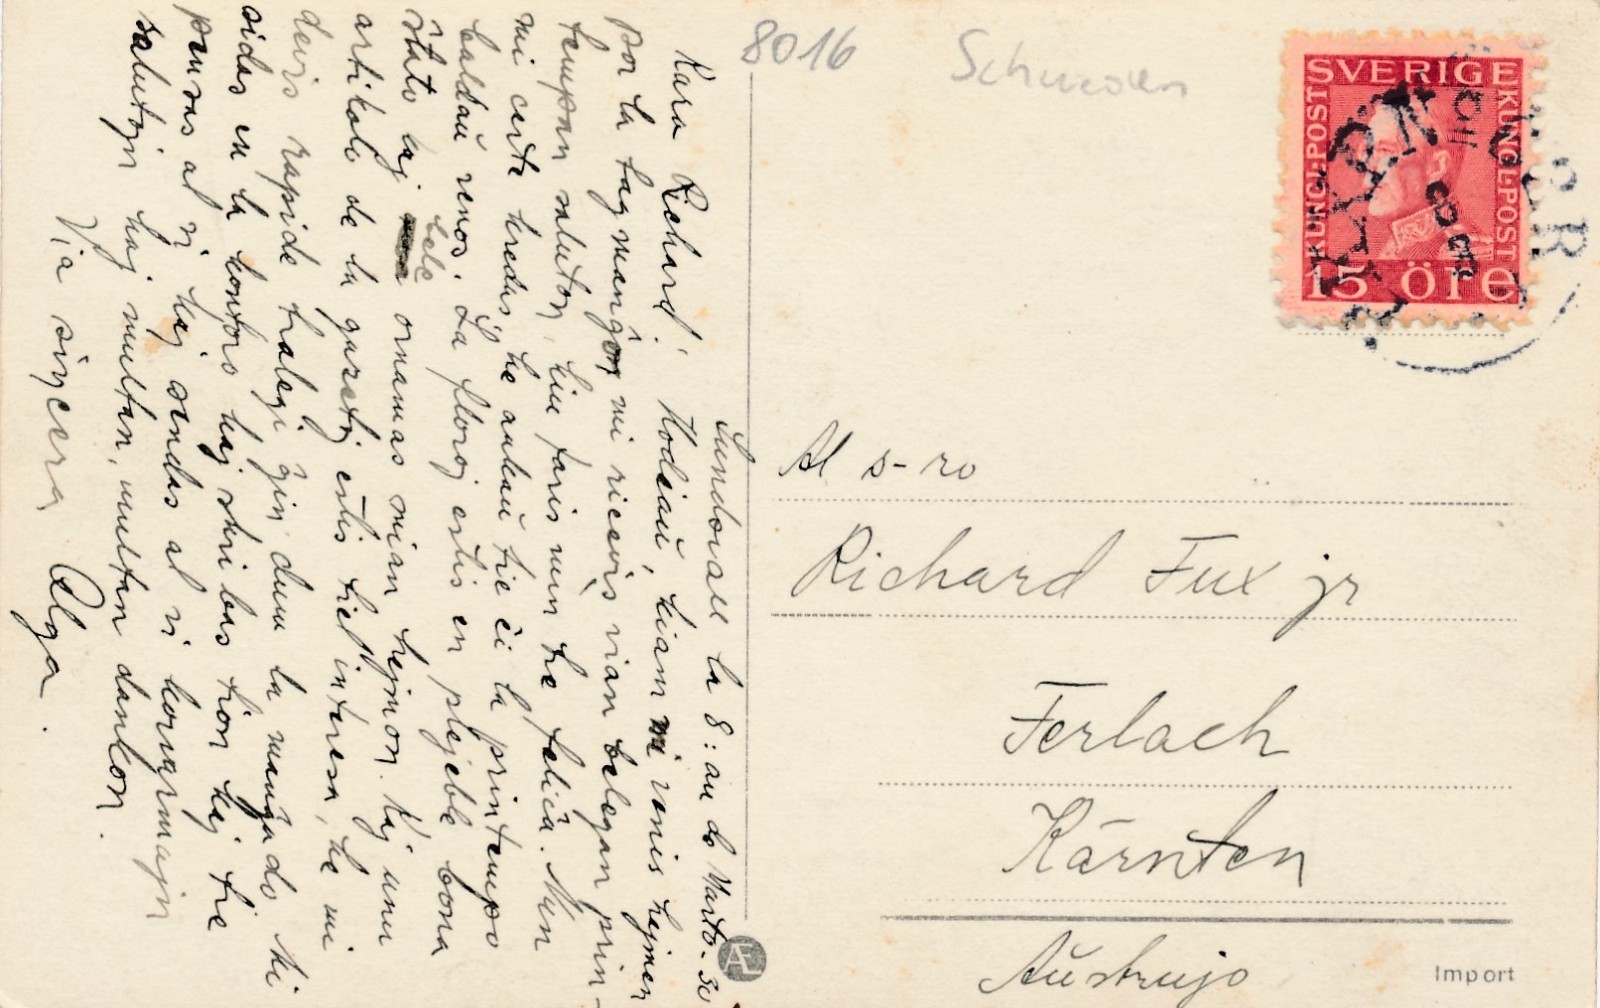 8016
Schweden
SVERIGE
KUNGL: POST
KUNGL: POST
15 ÖRE
Sundsvall la 8:an de Marto-30
Kara Richard! Hodiaŭ, kiam mi venis hejmen
por la tagmanĝo mi ricevis vian belegan prin-
tempan saluton, kiu faris min tre feliĉa. Nun
mi certe kredas, ke ankaŭ tie ĉi la printempo
baldaŭ venos. La floroj estis en plejeble bona
ŝtato kaj bele ornamas mian hejmon. Kaj unu
artikolo de la gazetoj estis tiel interesa, ke mi
devis rapide tralegi ĝin dum la manĝado. Mi
sidas en la kontoro kaj skribas tion kaj tre
pensas al vi kaj sendas al vi korvarmajn
salutojn kaj multan, multan dankon.
Via sincera Olga.
Al s-ro
Richard Fux jr
Ferlach
Kärnten
Aŭstrujo
Import
Æ